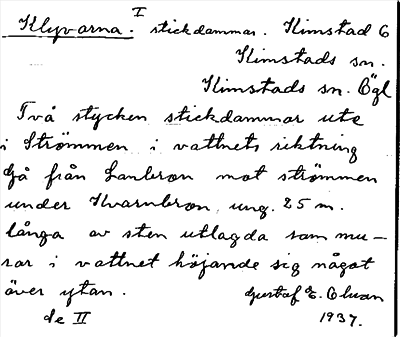 Klyvarna. I stickdammar. Kimstad 6
Kimstads sn.
Kimstads sn. Ögl
Två stycken stickdammar ute
i Strömmen i vattnets riktning
Gå från Lanbron mot strömmen
under Kvarnbron, ung. 25 m.
långa av sten utlagda som mu-
rar i vattnet höjande sig något
över ytan. Gustaf E. Olsson
de II 1937.